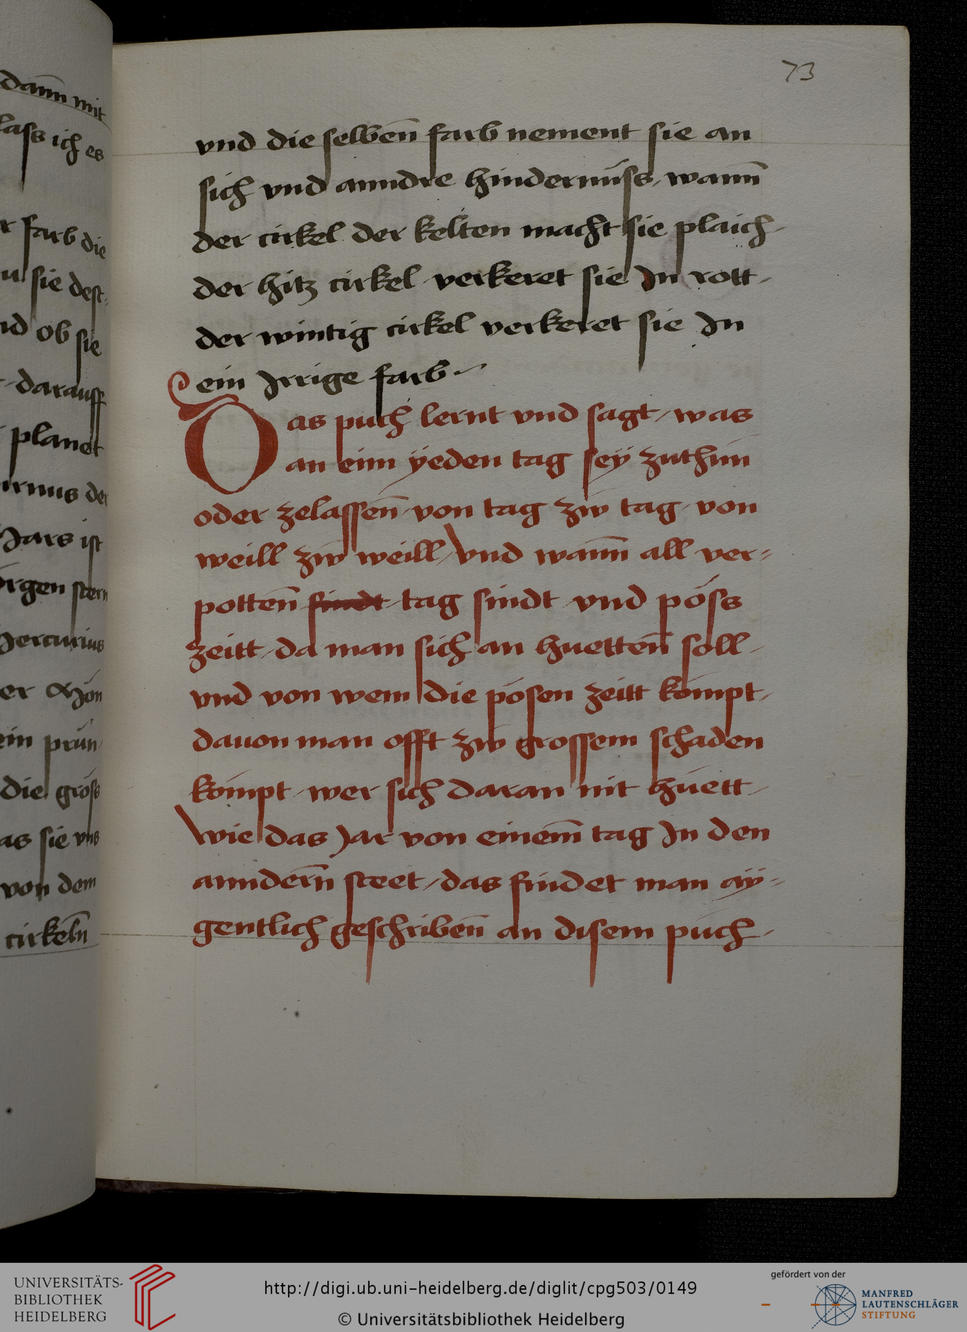 dann mit
lass ich es
r farb die
u sie dest
nd ob sie
darauff
planet
irnus der
Jars ist
orgen stern
Mercurius
er Mon
ein prün
die gröss
as sie vns
von dem
cirkeln̄
73
vnd die selben̄ farb nement sie an
sich vnd anndre hindernüss, wann̄
der cirkel der kelten macht sie plaich
der hitz cirkel verkeret sie Jn rott
der wintig cirkel verkeret sie Jn
ein Jrrige farb
Das puch lernt vnd sagt, was
an eim yeden tag sey zuthun
oder zelassen̄ von tag zw tag von
weill zw weill, vnd wann̄ all ver-
potten̄ sindt tag sindt vnd pöss
zeitt da man sich an huetten̄ soll
vnd von wem die pösen zeitt kömpt
dauon man offt zw grossem schaden
kömpt wer sich daran nit hüett
wie das Jar von einem̄ tag Jn den
anndern̄ steet, das findet man aÿ-
gentlich geschriben̄ an disem puch
UNIVERSITÄTS-
BIBLIOTHEK
HEIDELBERG
http://digi.ub.uni-heidelberg.de/diglit/cpg503/0149
© Universitätsbibliothek Heidelberg
gefördert von der
MANFRED
LAUTENSCHLÄGER
STIFTUNG